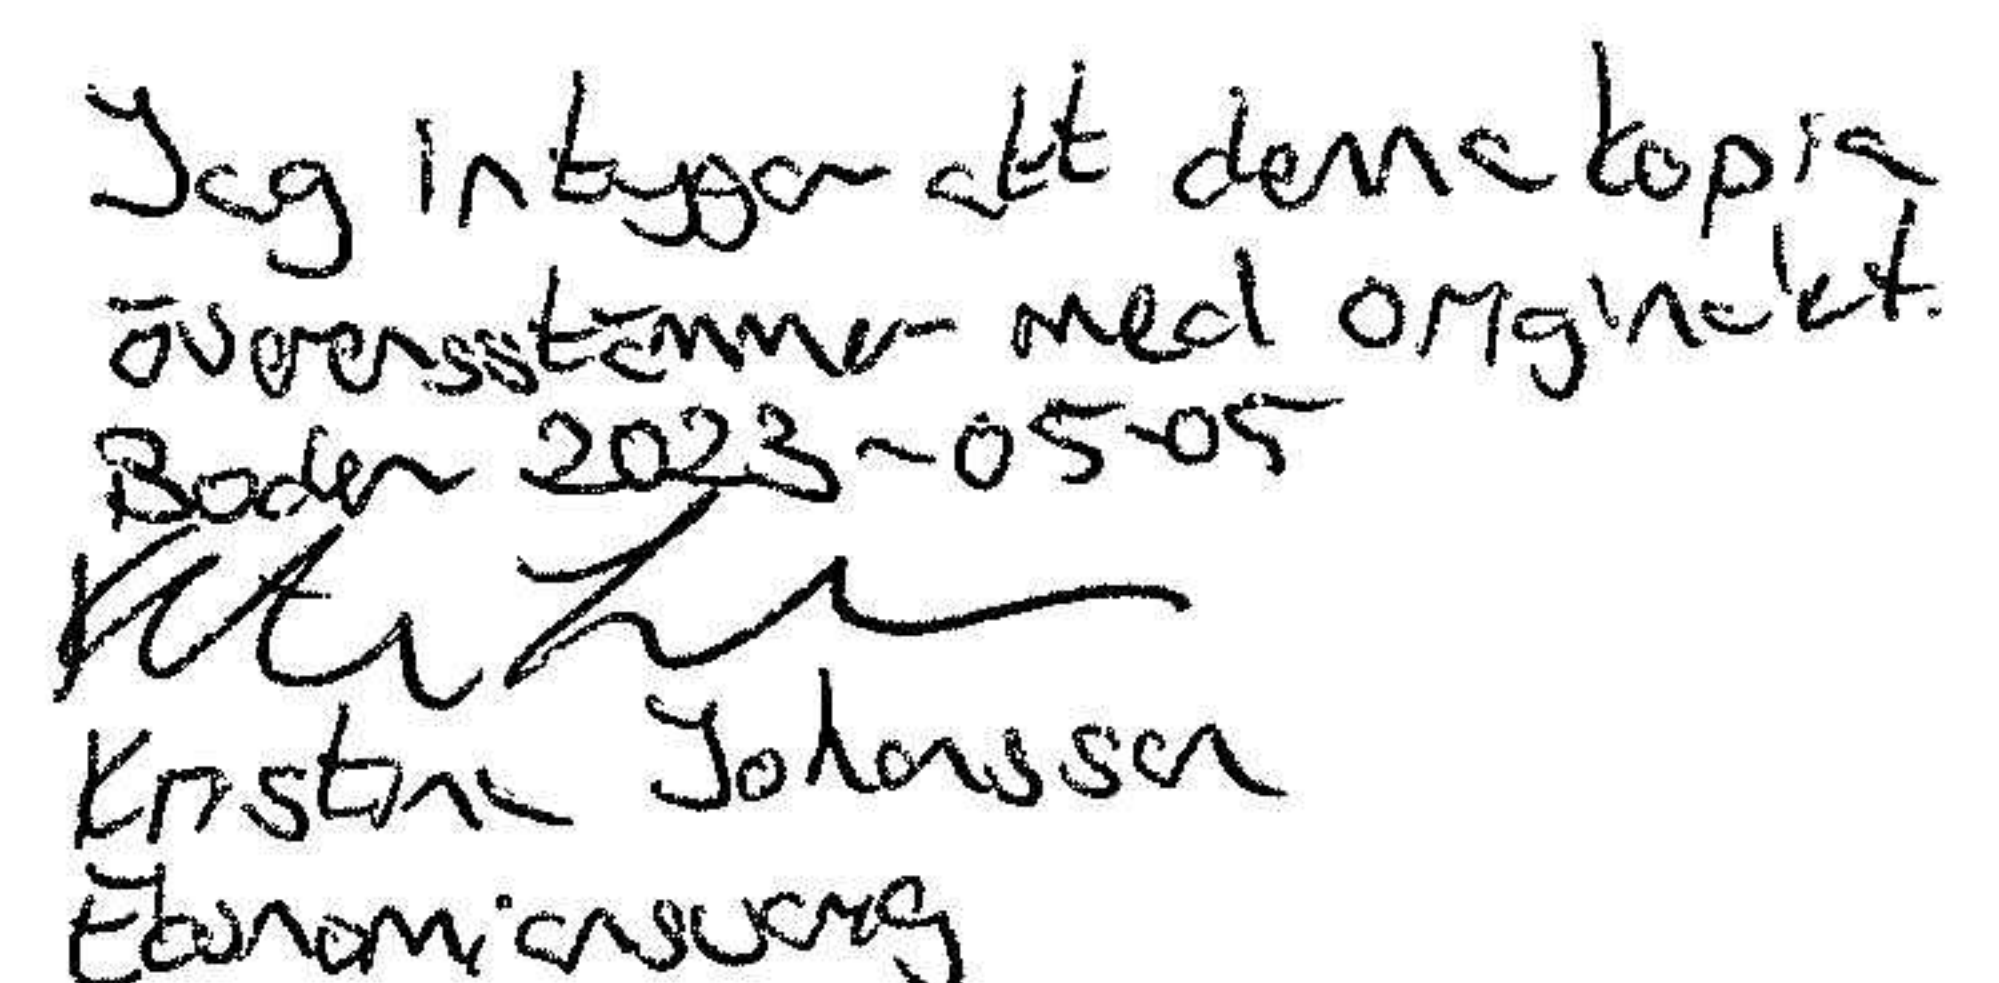 Jag intygar att denna kopia
överensstämmer med originalet.
Boden 2023-05-05
Kristina Johansson
Ekonomiansvarig